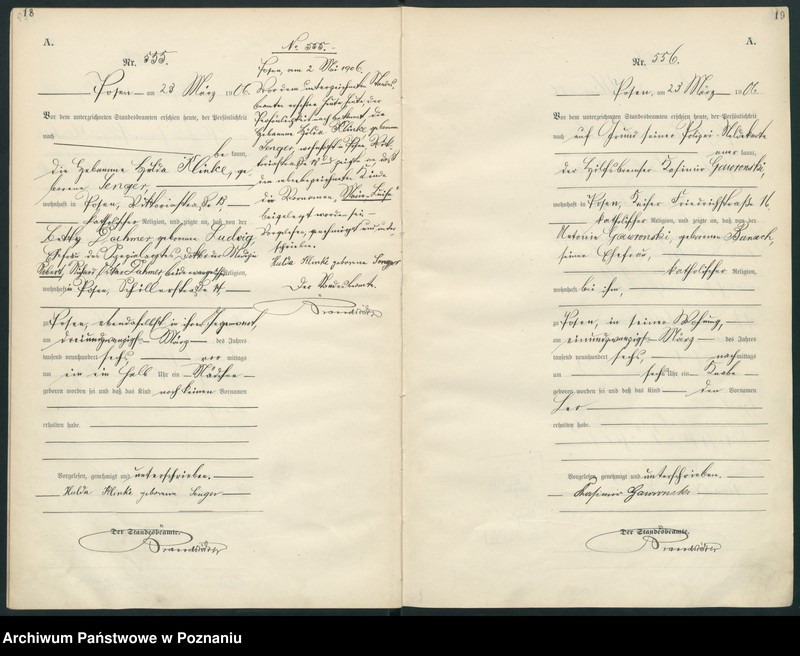 18
A.
Nr. 555.
Posen, am 23 März 1906.
Vor dem unterzeichneten Standesbeamten erschien heute, der Persönlichkeit
nach
bekannt,
die Hebamme Hulda Klinke, ge-
borene Senger,
wohnhaft in Posen, Viktoriastraße 13
katholischer Religion, und zeigte an, daß von der
geborene Ludwig,
Ehefrau des
beide evangelischer Religion,
wohnhaft in Posen, Schillerstraße
zu Posen, ebendaselbst in ihrer Gegenwart,
am dreiundzwanzigsten März des Jahres
tausend neunhundert sechs, vor mittags
um ein ein halb Uhr ein Mädchen
geboren worden sei und daß das Kind noch keinen Vornamen
erhalten habe.
Vorgelesen, genehmigt und unterschrieben.
Hulda Klinke geborene Senger
Der Standesbeamte.
No 555.
Posen, am 2 Mai 1906.
Vor dem unterzeichneten Standes-
beamten erschien heute, der
Persönlichkeit nach bekannt, die
Hebamme Hulda Klinke, geborene
Senger, wohnhaft in Posen, Vik-
toriastraße 13 und zeigte an, daß
dem nebenbezeichneten Kinde
die Vornamen
beigelegt worden sei
Vorgelesen, genehmigt und unter-
schrieben
Hulda Klinke geborene Senger
Der Standesbeamte.
19
A.
Nr. 556.
Posen, am 23 März 1906
Vor dem unterzeichneten Standesbeamten erschien heute, der Persönlichkeit
nach auf Grund seiner Polizei-Meldekarte
anerkannt,
der Kasimir Gawronski,
wohnhaft in Posen, Kaiser Friedrichstraße 16
katholischer Religion, und zeigte an, daß von der
Antonie Gawronski, geborenen Banach,
seiner Ehefrau,
katholischer Religion,
wohnhaft bei ihm,
zu Posen, in seiner Wohnung,
am einundzwanzigsten März des Jahres
tausend neunhundert sechs, nachmittags
um sechs Uhr ein Knabe
geboren worden sei und daß das Kind den Vornamen
Leo
erhalten habe.
Vorgelesen, genehmigt und unterschrieben.
Kasimir Gawronski
Der Standesbeamte.
Archiwum Państwowe w Poznaniu